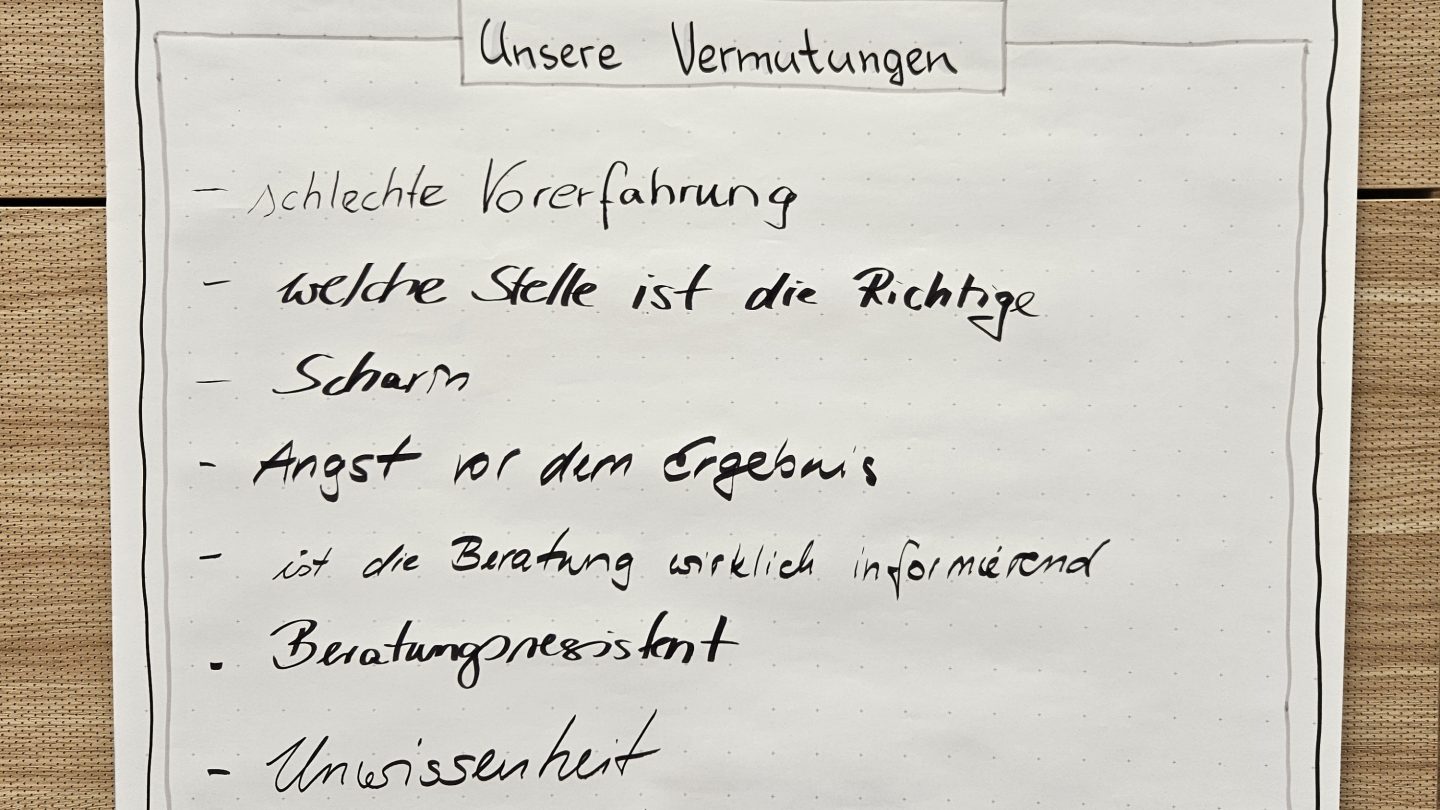 Unsere Vermutungen
- schlechte Vorerfahrung
- welche Stelle ist die Richtige
- Scham
- Angst vor dem Ergebnis
- ist die Beratung wirklich informierend
- Beratungsresistent
- Unwissenheit